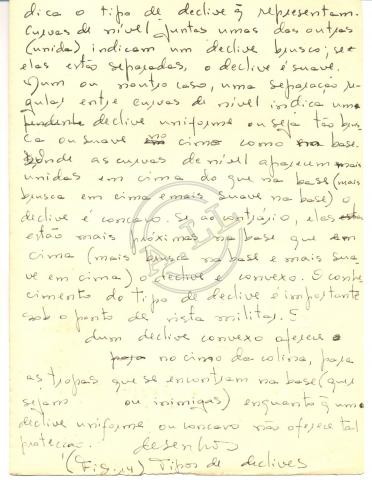 dica o tipo de declive q representam.
Curvas de nível juntas umas das outras
(unida) indicam um declive brusco; se
elas estão separadas, o declive é suave.
Num ou noutro caso, uma separação re-
gular entre curvas de nível indica uma
pendente declive uniforme ou seja tão brus
ca ou suave no cimo como na base.
Onde as curvas de nível aparecem mais
unidas em cima do que na base (mais
brusca em cima e mais suave na base) o
declive é concavo. Se ao contrário, elas esta
estão mais próximas na base que em
cima (mais brusca na base e mais sua
ve em cima) o declive é convexo. O conhe
cimento do tipo de declive é importante
sob o ponto de vista militar. E
dum declive convexo oferece
para no cimo da colina, para
as tropas que se encontram na base (que
sejam ou inimigas) enquanto q um
declive uniforme ou concavo não oferece tal
protecção. desenhos
(Fig. 14) Tipos de declives